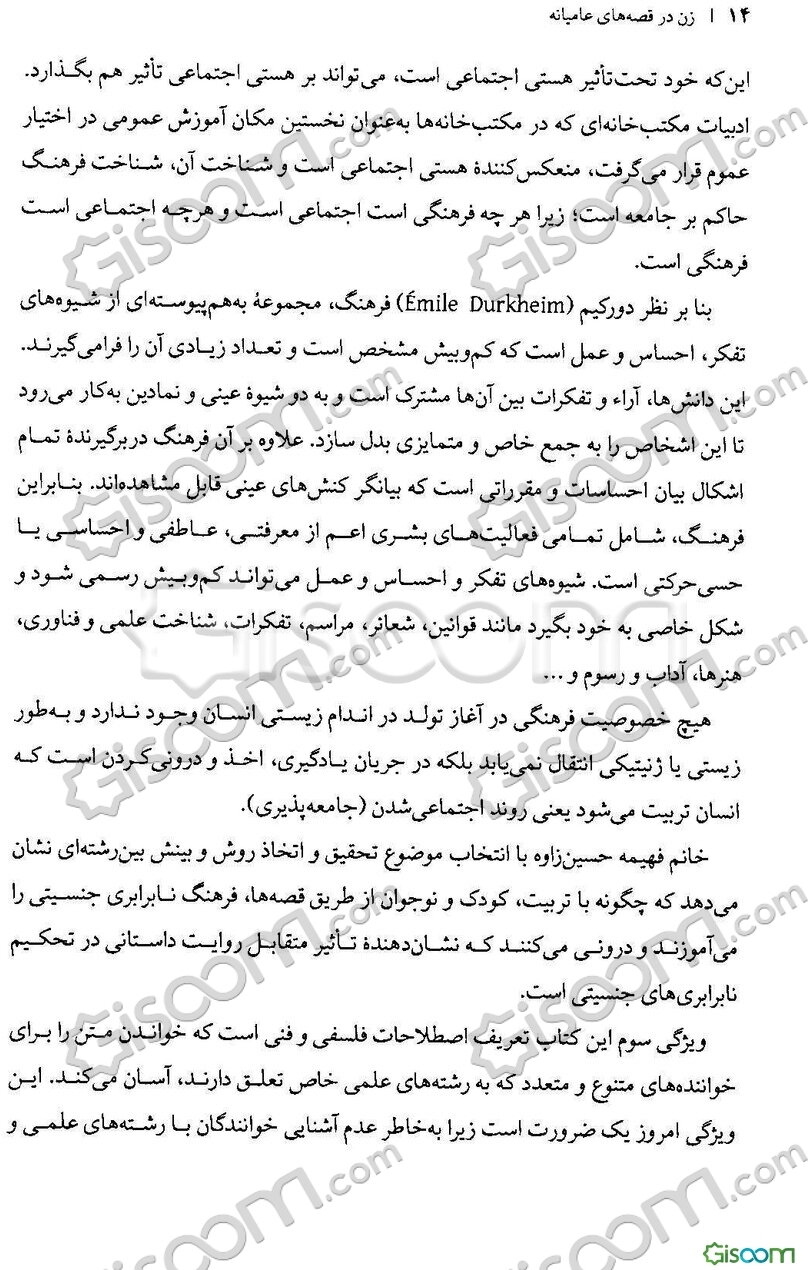 ۱۴ | زن در قصه‌های عامیانه
این‌که خود تحت‌تأثیر هستی اجتماعی است، می‌تواند بر هستی اجتماعی تأثیر هم بگذارد.
ادبیات مکتب‌خانه‌ای که در مکتب‌خانه‌ها به‌عنوان نخستین مکان آموزش عمومی در اختیار
عموم قرار می‌گرفت، منعکس‌کنندهٔ هستی اجتماعی است و شناخت آن، شناخت فرهنگ
حاکم بر جامعه است؛ زیرا هر چه فرهنگی است اجتماعی است و هرچه اجتماعی است
فرهنگی است.
بنا بر نظر دورکیم (Émile Durkheim) فرهنگ، مجموعهٔ به‌هم‌پیوسته‌ای از شیوه‌های
تفکر، احساس و عمل است که کم‌وبیش مشخص است و تعداد زیادی آن را فرامی‌گیرند.
این دانش‌ها، آراء و تفکرات بین آن‌ها مشترک است و به دو شیوهٔ عینی و نمادین به‌کار می‌رود
تا این اشخاص را به جمع خاص و متمایزی بدل سازد. علاوه بر آن فرهنگ دربرگیرندهٔ تمام
اشکال بیان احساسات و مقرراتی است که بیانگر کنش‌های عینی قابل مشاهده‌اند. بنابراین
فرهنگ، شامل تمامی فعالیت‌های بشری اعم از معرفتی، عاطفی و احساسی یا
حسی‌حرکتی است. شیوه‌های تفکر و احساس و عمل می‌تواند کم‌وبیش رسمی شود و
شکل خاصی به خود بگیرد مانند قوانین، شعائر، مراسم، تفکرات، شناخت علمی و فناوری،
هنرها، آداب و رسوم و ...
هیچ خصوصیت فرهنگی در آغاز تولد در اندام زیستی انسان وجود ندارد و به‌طور
زیستی یا ژنیتیکی انتقال نمی‌یابد بلکه در جریان یادگیری، اخذ و درونی‌کردن است که
انسان تربیت می‌شود یعنی روند اجتماعی‌شدن (جامعه‌پذیری).
خانم فهیمه حسین‌زاوه با انتخاب موضوع تحقیق و اتخاذ روش و بینش بین‌رشته‌ای نشان
می‌دهد که چگونه با تربیت، کودک و نوجوان از طریق قصه‌ها، فرهنگ نابرابری جنسیتی را
می‌آموزند و درونی می‌کنند که نشان‌دهندهٔ تأثیر متقابل روایت داستانی در تحکیم
نابرابری‌های جنسیتی است.
ویژگی سوم این کتاب تعریف اصطلاحات فلسفی و فنی است که خواندن متن را برای
خواننده‌های متنوع و متعدد که به رشته‌های علمی خاص تعلق دارند، آسان می‌کند. این
ویژگی امروز یک ضرورت است زیرا به‌خاطر عدم آشنایی خوانندگان با رشته‌های علمی و
Gisoom